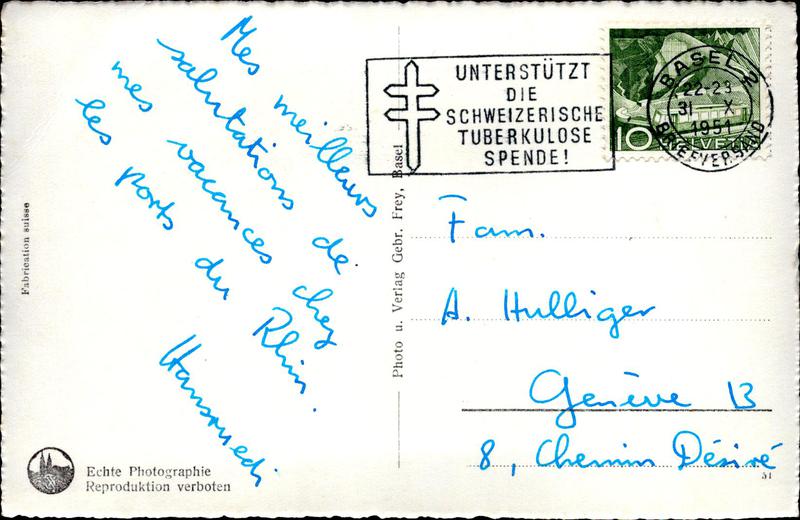 Mes meilleurs
salutations de
mes vacances chez
les ports du Rhin.
Hansruedi
Fabrication suisse
Echte Photographie
Reproduktion verboten
Photo u. Verlag Gebr. Frey, Basel
UNTERSTÜTZT
DIE
SCHWEIZERISCHE
TUBERKULOSE
SPENDE!
10
HELVETIA
BASEL 2
22-23
31 X
1951
BRIEFVERSAND
Fam.
A. Hulliger
Genève 13
8, Chemin Désiré
51